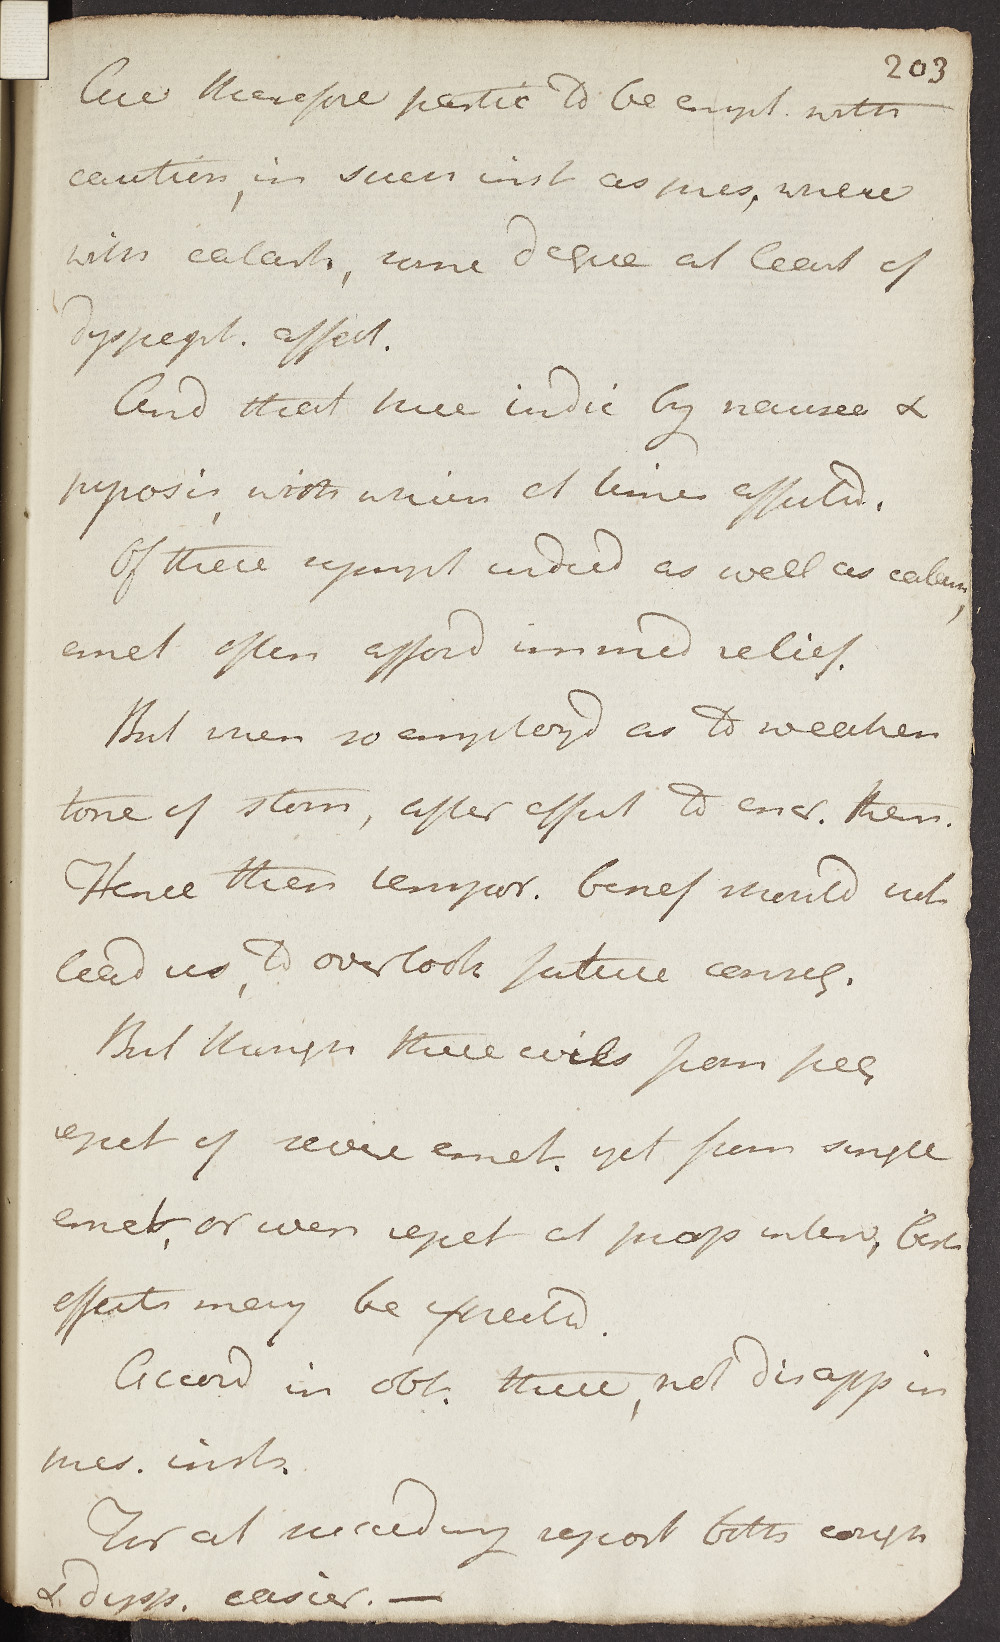 203
Are therefore partic to be empt. with
caution, in such inst as pres, where
with catarrh, some degree at least of
dyspept. affect.
And that here indic by nausea &
pyrosis, with which at times affectd.
Of these sympt indeed as well as catarrh,
emet often afford immed relief.
But when so employd as to weaken
tone of stom, after effect to encr. them.
Hence then tempor. benef should not
lead us, to overlook future conseq.
But though these evils from freq
repet of severe emet. yet from single
emet, or even repet at prop interv, best
effects may be expectd.
Accord in obt. these, not disapp in
pres. inst.
For at succeeding report both cough
& dysp. easier. —